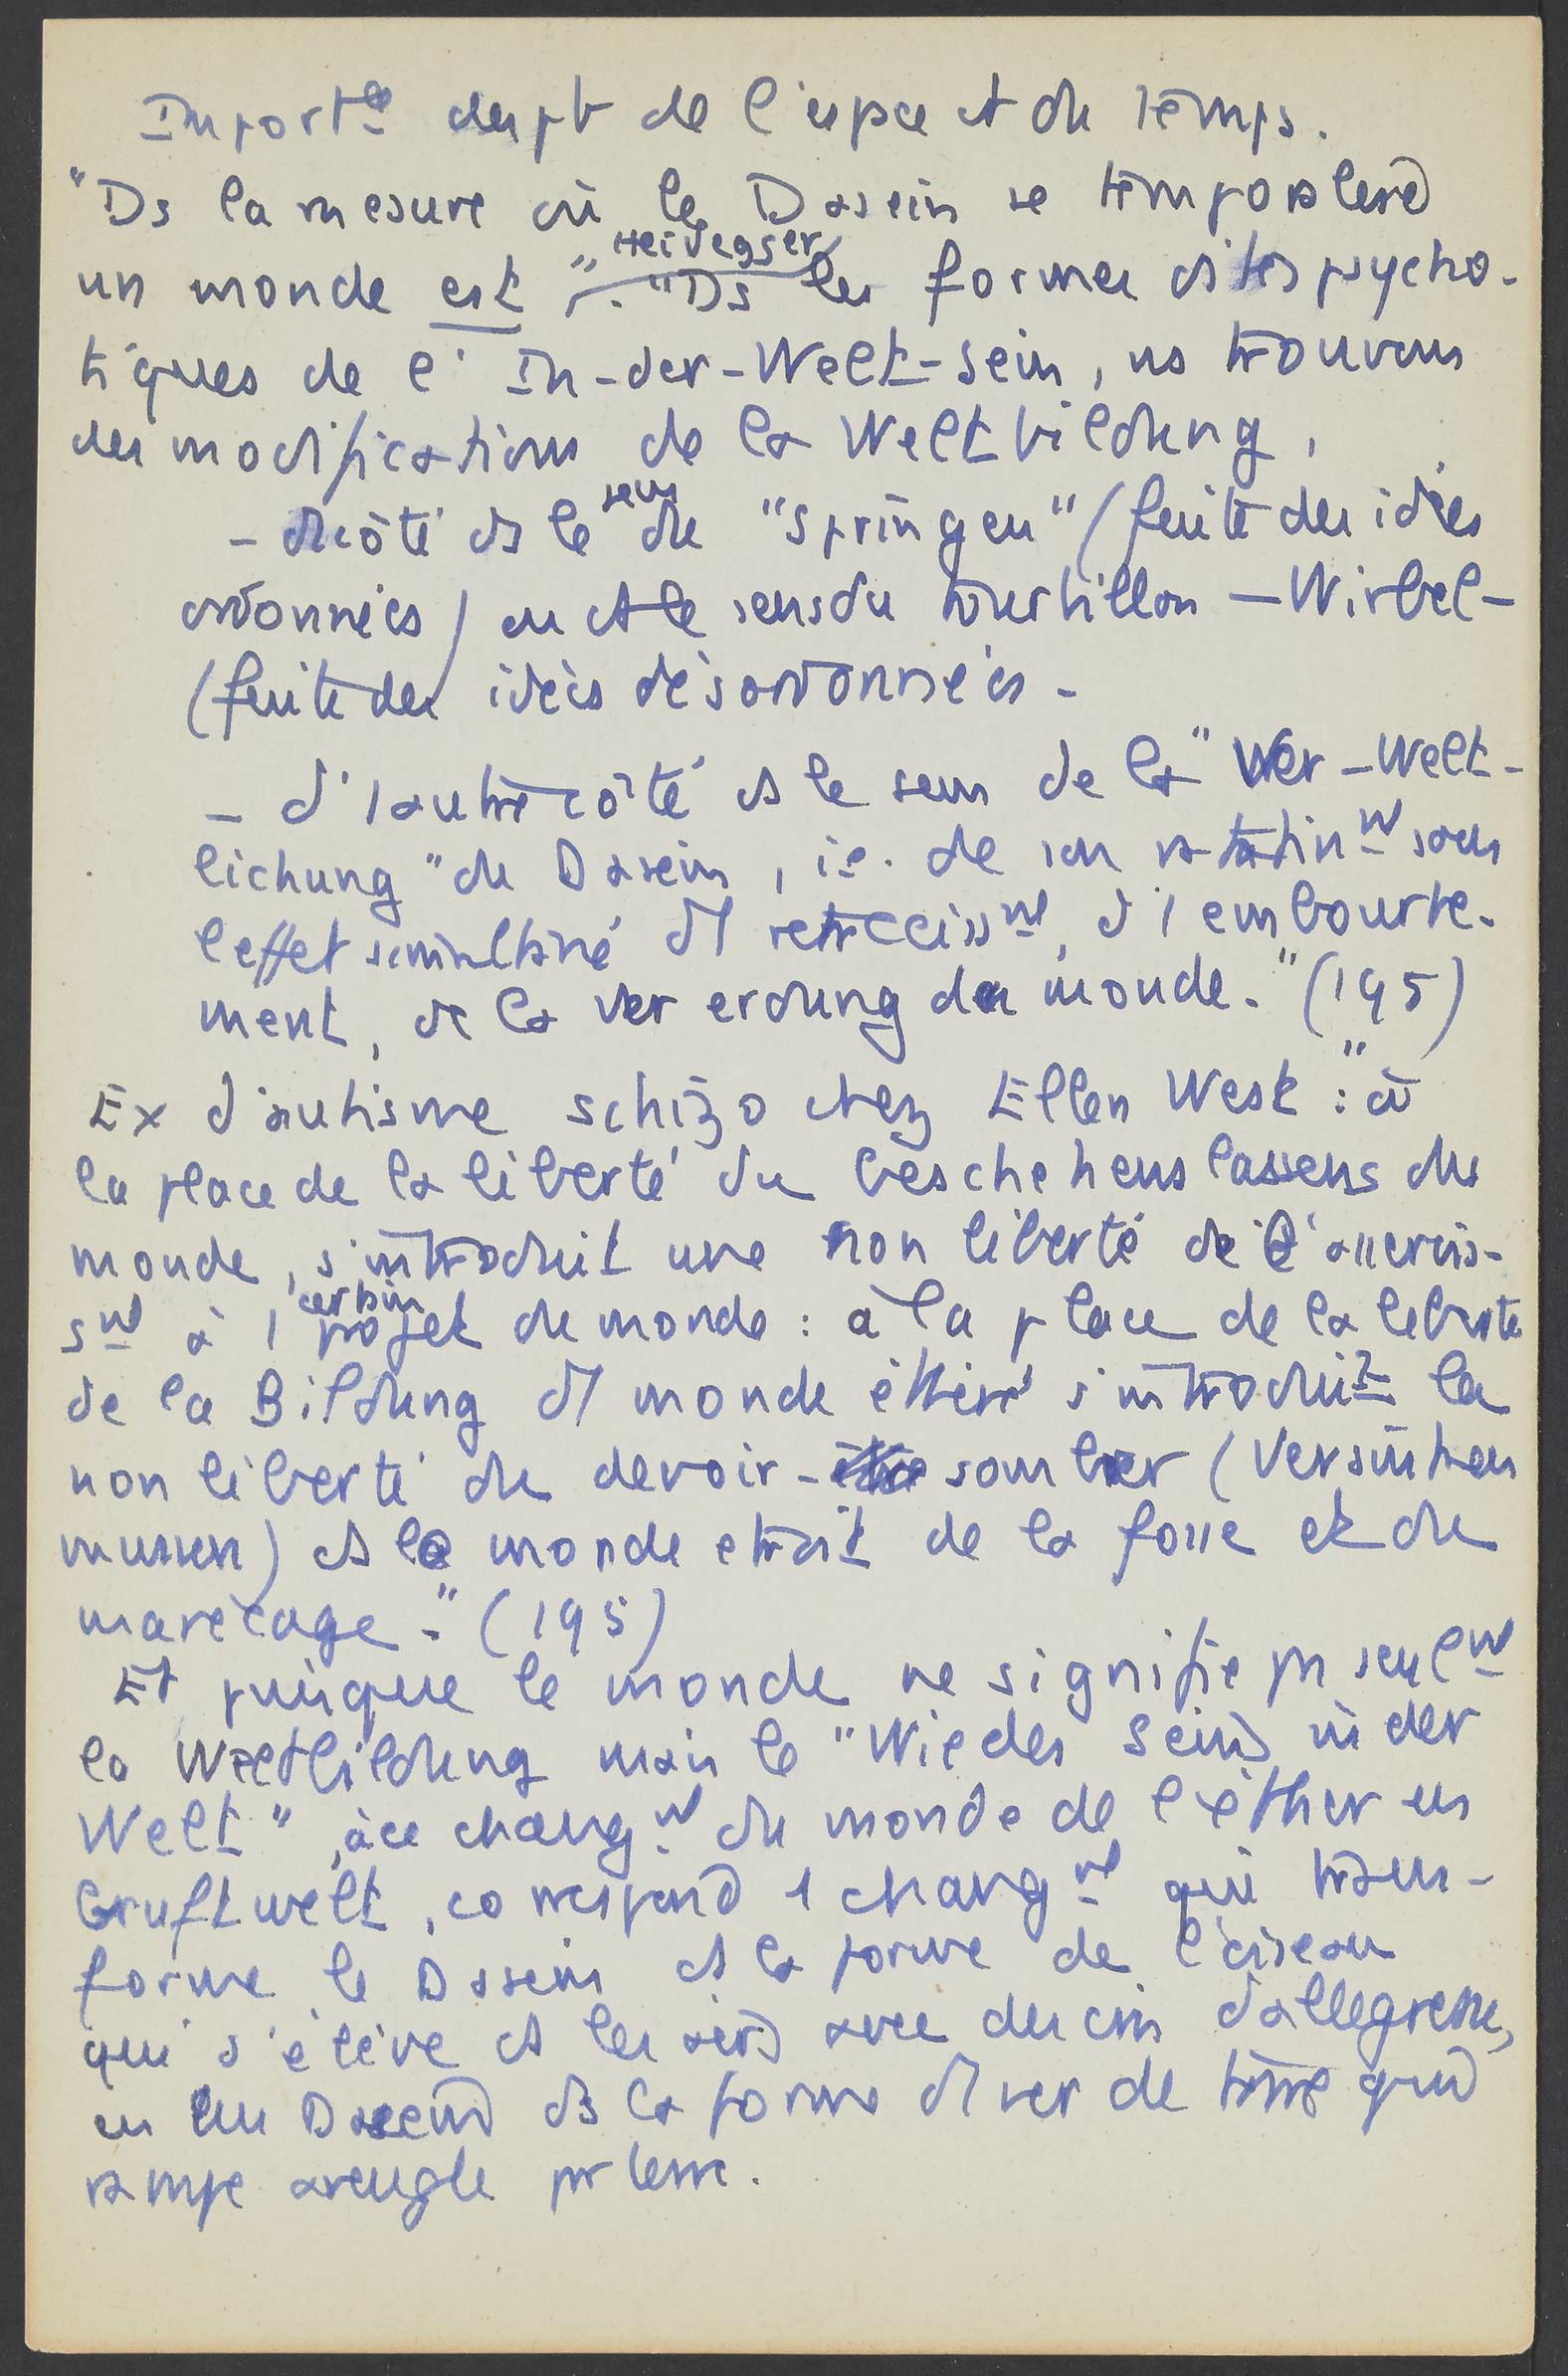 Importce du pb de l'espace et du temps.
"Ds la mesure où le Dasein se temporalise
un monde est" Heidegger. "Ds les formes dites psycho-
tiques de l'In-der-Welt-sein, ns trouvons
des modifications de la Weltbildung,
- d'1 côté ds le sens du "springen" (fuite des idées
ordonnées) ou ds le sens du tourbillon — Wirbel —
(fuite des idées désordonnées -
- d'1 autre côté ds le sens de la "Ver-Welt-
lichung" du Dasein, i.e. de son ratatinnt sous
l'effet simultané d'1 retrecissnt, d'1 embourbe-
ment, de la ver erdung du monde." (195)
Ex d'autisme schizo chez Ellen West : "à
la place de la liberté du Geschehens lassens du
monde, s'introduit une non liberté de l'asservis-
snt à 1 certain projet du monde : à la place de la liberté
de la Bildung d'1 monde éthéré s'introduit la
non liberté du devoir-sombrer (Versinken
mussen) ds le monde etroit de la fosse et du
marécage." (195)
Et puisque le monde ne signifie pas seulnt
la Weltbildung mais le "Wie des Seins in der
Welt", à ce changnt du monde de l'éther en
Gruftwelt, correspond 1 changnt qui trans-
forme le Dasein ds la forme de l'oiseau
qui s'élève ds les airs avec des cris d'allegresse,
en un Dasein ds la forme d'1 ver de terre qui
rampe aveugle par terre.